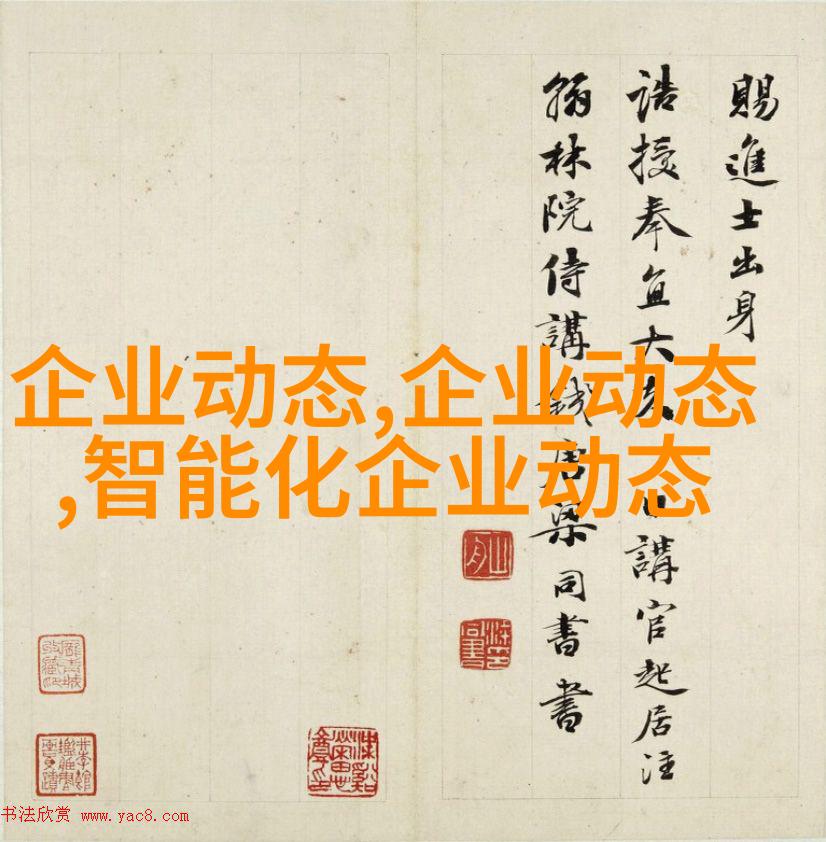 賜進士出身
誥授奉直大夫日講官起居注
翰林院侍講錢唐梁同書書
企业动态,企业动态
,智能化企业动态
书法欣赏 www.yac8.com